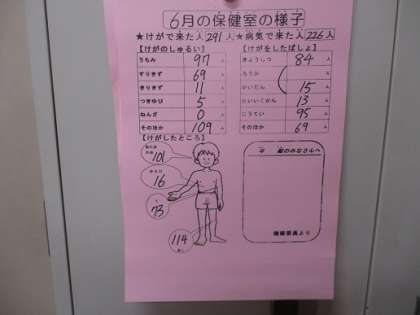 6月の保健室の様子
★けがで来た人 291人 ★病気で来た人 226人
【けがのしゅるい】
うちみ 97 人
すりきず 69 人
きりきず 11 人
つきゆび 5 人
ねんざ 0 人
そのほか 109 人
【けがをしたばしょ】
きょうしつ 84 人
ろうか
かいだん 15 人
たいいくかん 13 人
こうてい 95 人
そのほか 69 人
【けがしたところ】
101
16
73
114
のみなさんへ
保健委員より